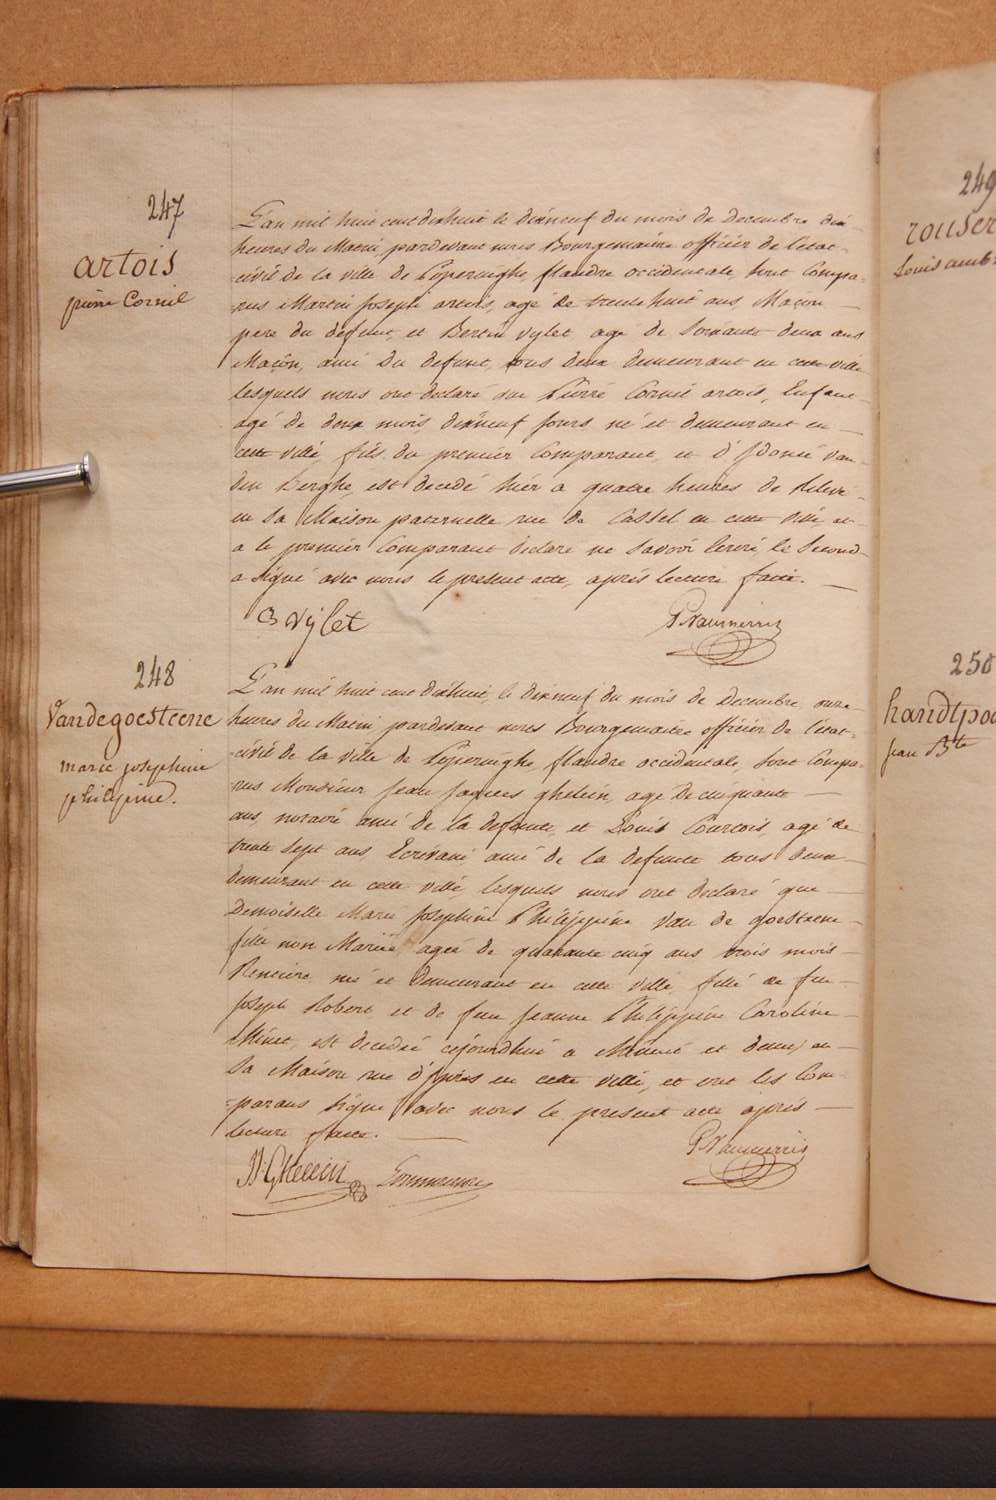 247
artois
pierre Corneil
L'an mil huit cent dixhuit le dixneuf du mois de Decembre dix
heures du Matin pardevant nous Bourguemaitre officier de l'etat-
-civil de la ville de Poperinghe, flandre occidentale, sont Compa-
-rus Martin Joseph artois, agé de trente huit ans Maçon
pere du defunt, et Bertin vylet agé de soixante deux ans
Maçon, ami du defunt, tous deux demeurant en cette ville
lesquels nous ont declaré que Pierre Corneil artois, Enfant
agé de deux mois dixneuf jours né et demeurant en
cette ville, fils du premier Comparant, et d'Idonie van-
den Berghe, est decedé hier a quatre heures de Relevé-
en sa Maison paternelle rue de Cassel en cette ville, et
a le premier Comparant declaré ne savoir Ecrire, le second
a signé avec nous le present acte, après lecture faite.
B vylet
P. Vanmerris
248
Vandegoesteene
marie josephine
philipine.
L'an mil huit cent dixhuit, le dixneuf du mois de Decembre, onze
heures du Matin pardevant nous Bourguemaitre officier de l'etat-
-civil de la ville de Poperinghe, flandre occidentale, sont Compa-
rus Monsieur Jean Jaques ghelein, agé de cinquante
ans, notaire ami de la defunte, et Louis Courtois, agé de
trente sept ans, Ecrivain ami de la defunte tous deux
demeurant en cette ville, lesquels nous ont declaré que
Demoiselle Marie Josephine Philippine Van de goesteene
fille non Mariée, agée de quarante cinq ans trois mois
Rentiere, né et demeurant en cette ville fille de feu
Joseph Robert et de feue Jeanne Philippine Caroline
Minet, est decedée cejourdhui a Minuit et demi, en
sa Maison rue d'ypres en cette ville, et ont les Com-
-parans signé avec nous le present acte après
lecture faite.
P. Vanmerris
249
rouser
Louis amb
250
handtpoo
jean Bte